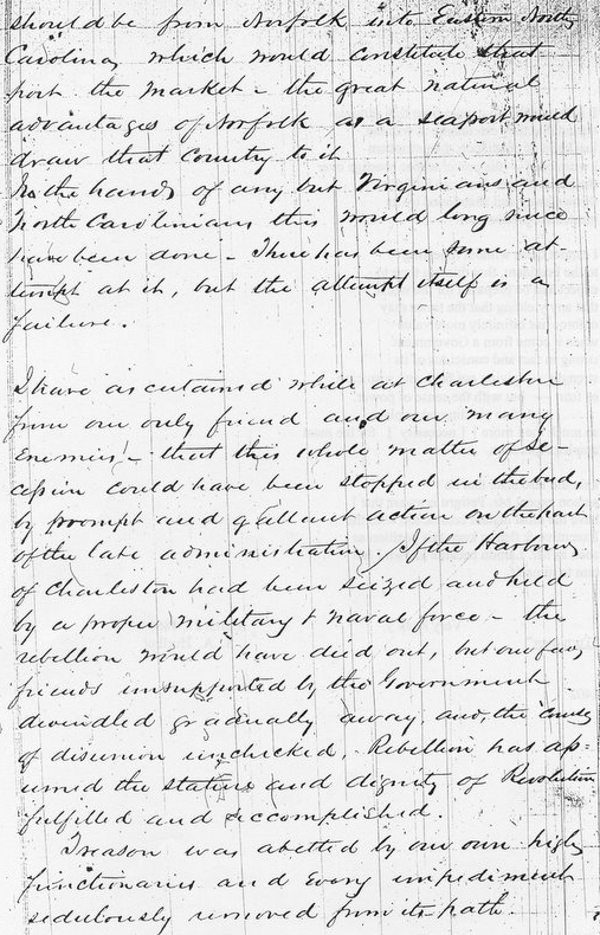 should be from Norfolk into Eastern North
Carolina, which would constitute that
port the market - the great natural
advantages of Norfolk as a seaport would
draw that Country to it
In the hands of any but Virginians and
North Carolinians this would long since
have been done - There has been some at-
tempt at it, but the attempt itself is a
failure.
I have ascertained while at Charleston
from our only friend and our many
enemies - that this whole matter of Se-
cession could have been stopped in the bud,
by prompt and gallant action on the part
of the late administration. If the Harbour
of Charleston had been seized and held
by a proper military & naval force - the
rebellion would have died out, but our few
friends unsupported by the Government
dwindled gradually away, and, the course
of disunion unchecked, Rebellion has as-
sumed the stature and dignity of Revolution
fulfilled and accomplished.
Treason was abetted by our own high
functionaries and every impediment
sedulously removed from its path.